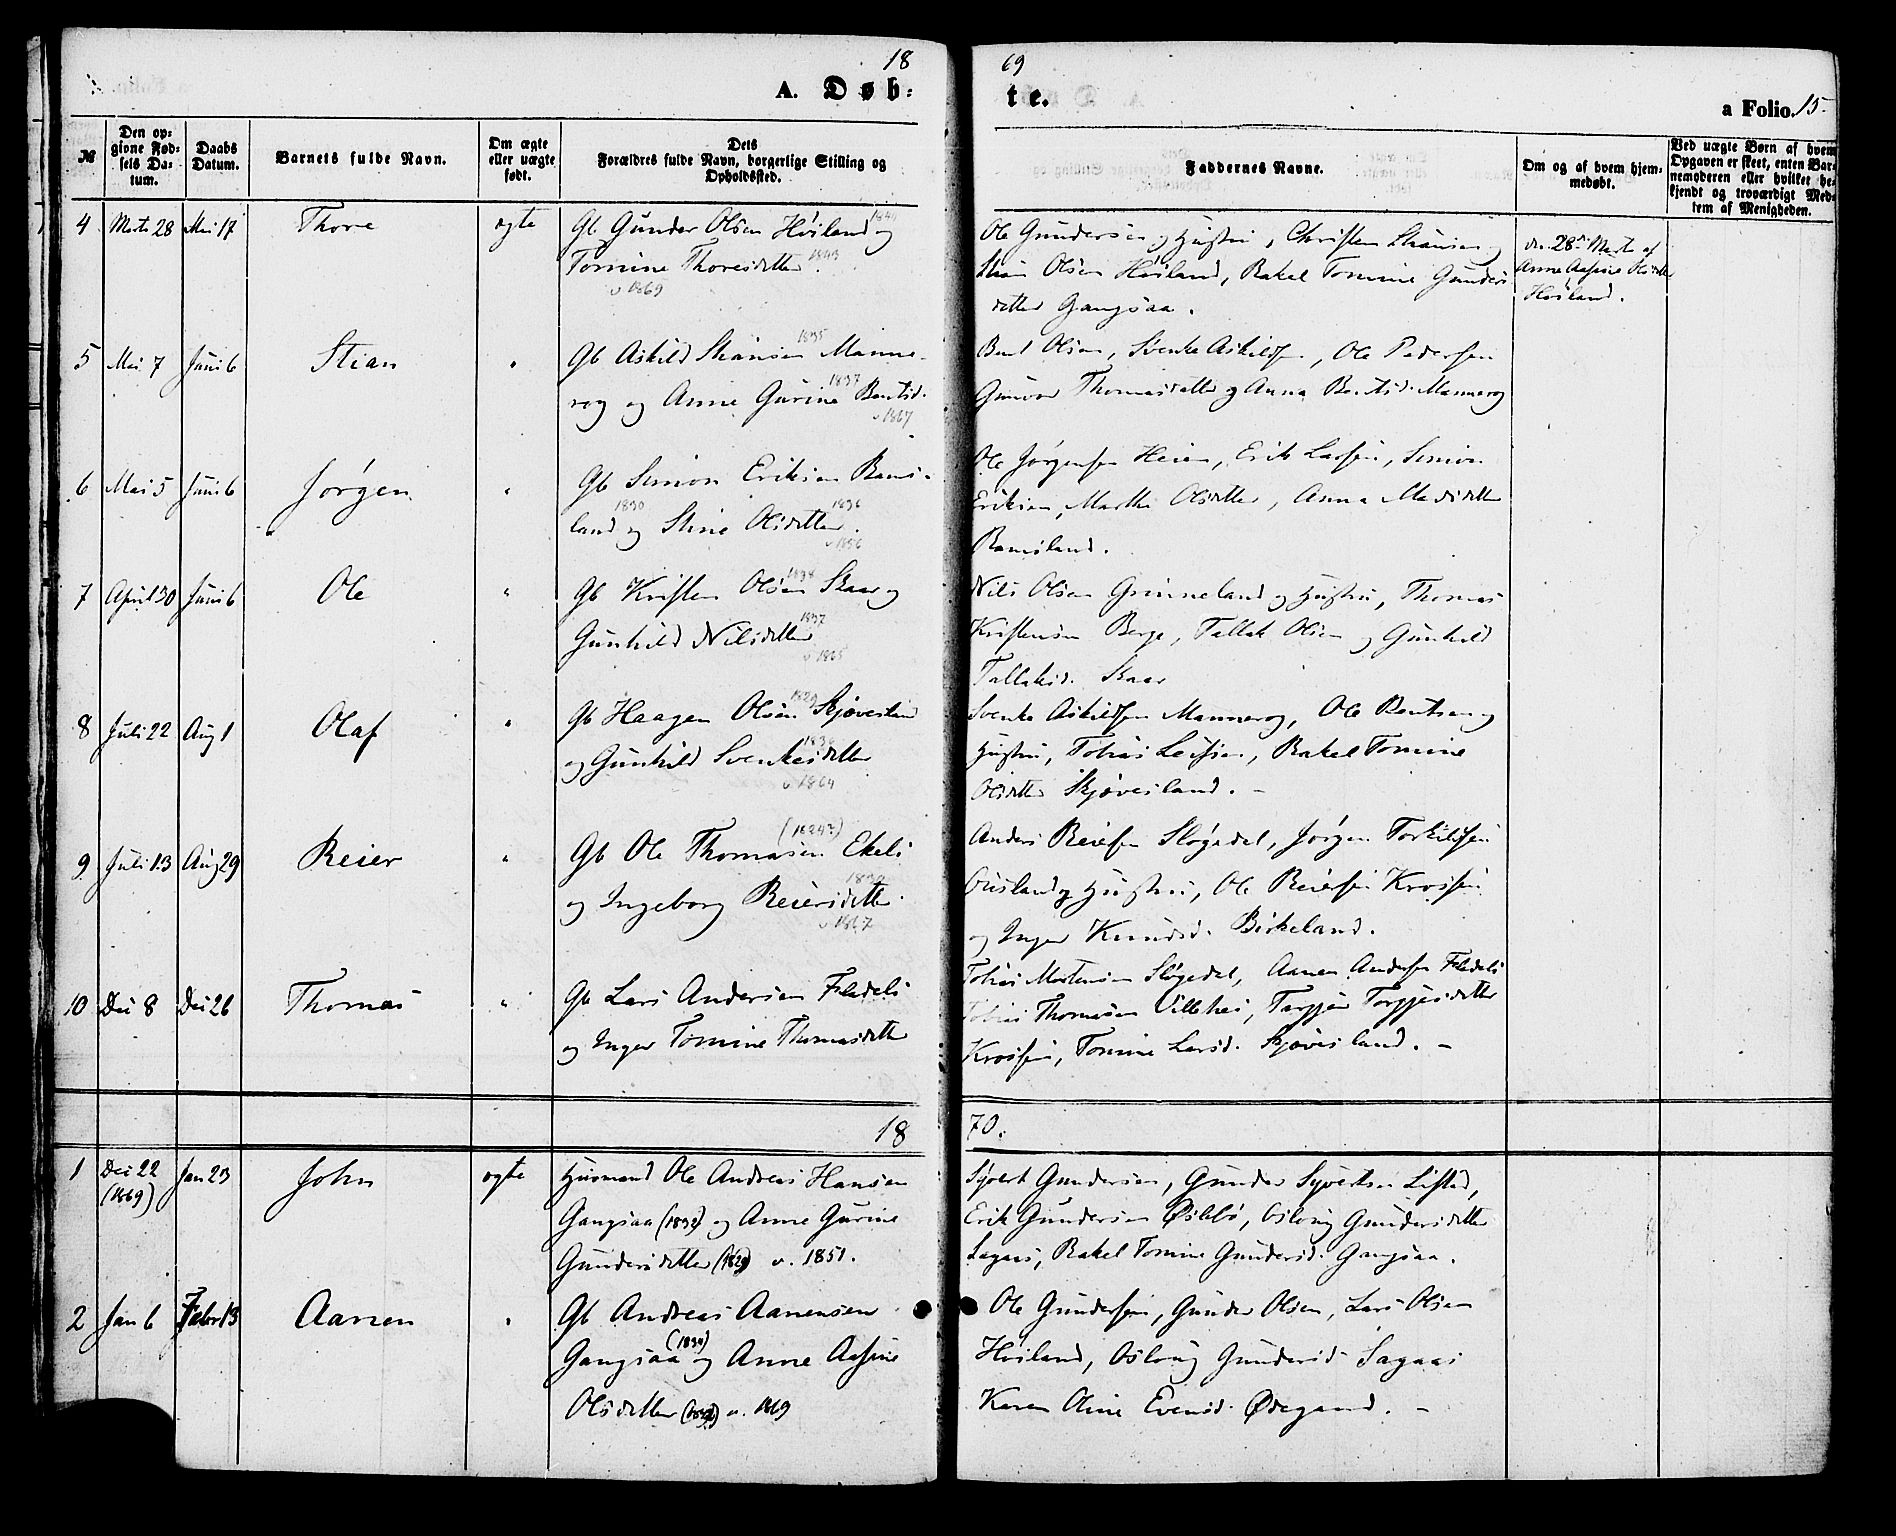 18
69
A. Døb:
te.
a Folio. 15.
№
Den op-
givne Fød-
sels Da-
tum.
Daabs
Datum.
Barnets fulde Navn.
Om ægte
eller uægte
født.
Dets
Forældres fulde Navn, borgerlige Stilling og
Opholdssted.
Faddernes Navne.
Om og af hvem hjem-
medøbt.
Ved uægte Børn af hvem
Opgaven er skeet, enten Bar-
nemoderen eller hvilket be-
kjendt og troværdigt Med-
lem af Menigheden.
4 Marts 28 Mai 17 Thore ægte Gb Gunder Olsen Høiland og
Tomine Thoresdatter 1843
v 1869
Ole Gundersen og Hustru, Christen Stiansen og
Stian Olsen Høiland, Rakel Tomine Gunders
datter Gangsaa.
den 28de Marts af
Anne Aasine Olsdatter
Høiland.
5 Mai 7 Juni 6 Stian " Gb Askild Stiansen 1835 Manne-
rog og Anne Gurine 1837 Bentsd.
v 1867
Bent Olsen, Svenke Askildsen, Ole Pedersen
Gunvor Thomasdatter og Anna Bentsd. Mannerog
6 Mai 5 Juni 6 Jørgen " Gb Simon Eriksen Rams-
land 1830 og Stine Olsdatter 1836.
v 1856
Ole Jørgensen Heien, Erik Larsen, Simon
Eriksen, Marthe Olsdatter, Anna Madsdatter
Ramsland.
7 April 30 Juni 6 Ole " Gb Kristen Olsen 1838 Skaar og
Gunhild Nilsdatter 1837
v 1865
Nils Olsen Grinneland og Hustru, Thomas
Kristensen Berge, Tallak Olsen og Gunhild
Tallaksd. Skaar
8 Juli 22 Aug 1 Olaf " Gb Haagen Olsen 1829 Skjævesland
og Gunhild Svenkesdatter
v 1864
Svenke Askildsen Mannerog, Ole Bentsen og
Hustru, Tobias Leufsen, Rakel Tomine
Olsdatter Skjævesland. –
9 Juli 13 Aug 29 Reier " Gb Ole Thomasen (1824?) Ekeli
og Ingeborg Reiersdatter.
v 1867
Anders Reiersen Sløgedal, Jørgen Torkildsen
Ousland og Hustru, Ole Reiersen Krossen
og Inger Knudsd. Birkeland.
10 Dec 8 Dec 26 Thomas " Gb Lars Andersen Fladeli
og Inger Tomine Thomasdatter
Tobias Mortensen Sløgedal, Aanen Andersen Fladeli
Tobias Thomasen Villehei, Targjer Torgjusdatter
Krossen, Tomine Larsd. Skjævesland. –
18
70.
1 Dec 22
(1869) Jan 23 John ægte Husmand Ole Andreas Hansen
Gangsaa (1832) og Anne Gurine
Gundersdatter (1829) v. 1851.
Sjvert Gundersen, Gunder Syvertsen Lifted,
Erik Gundersen Øslebø, Aslaug Gundersdatter
Sagaas, Rakel Tomine Gundersd. Gangsaa.
2 Jan 6 Febr 13 Aanen " Gb Andreas Aanensen
Gangsaa (1834) og Anne Aasine
Olsdatter v. 1869
Ole Gundersen, Gunder Olsen, Lars Olsen
Høiland, Aslaug Gundersd. Sagaas
Karen Oline Evensd. Ødegaard. –